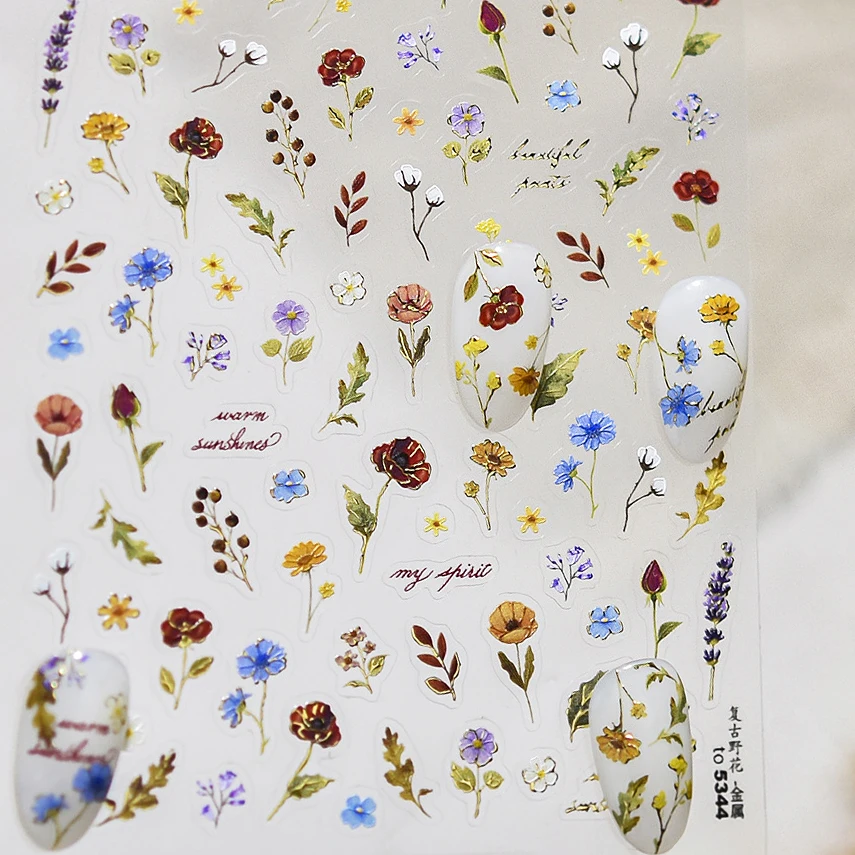 beautiful
poets
warm
sunshines
my spirit
warm
复古野花·金属
to 5344